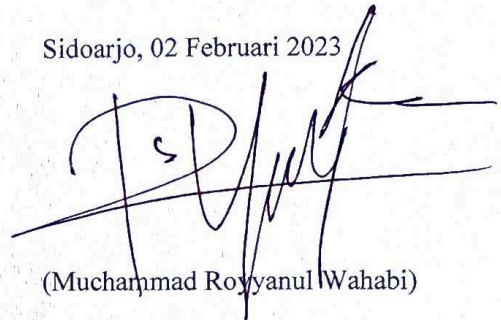 Sidoarjo, 02 Februari 2023
(Muchammad Royyanul Wahabi)